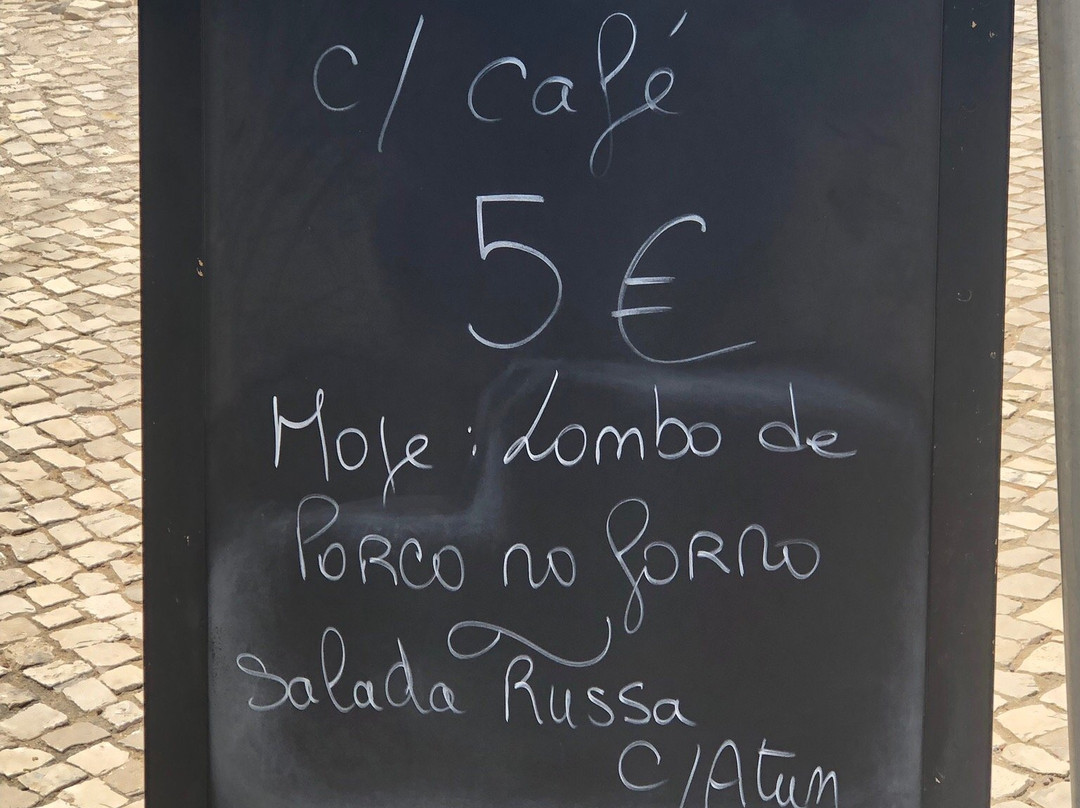 c/ café
5 €
Hoje: Lombo de
Porco no forno
Salada Russa
C/Atum